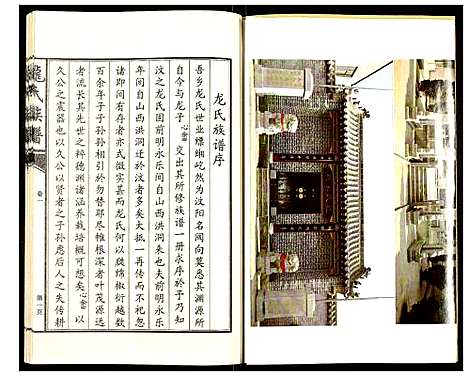 龙氏族谱序
吾乡龙氏世业缥缃屹然为汶阳名阀向莫悉其渊源所
自今与龙子心畲交出其所修族谱一册求序於予乃知
汶之龙氏固前明永乐间自山西洪洞来也由明永乐
年间自山西洪洞迁於汶者多矣大抵一再传而不祀忽
诸即间有存者亦式微实甚而龙氏何以瓞绵椒衍越数
百余年子子孙孙相引於勿替耶尽根深者叶茂源远
者流长其先世之稡德渊诸涵养栽培概可想矣心畲以
久公之裔惧久公以贤者之子孙虑后人之失传耕
龙氏族谱
卷一
第一页